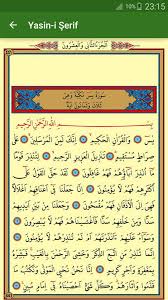 23:15
Yasin-i Şerif
اَلْجُزْءُ الثَّانِي وَالْعِشْرُونَ
سُورَةُ يٰسٓ مَكِّيَّةٌ وَهِيَ
ثَلَاثٌ وَثَمَانُونَ اٰيَةً
بِسْمِ اللّٰهِ الرَّحْمٰنِ الرَّحِيمِ
يٰسٓ وَالْقُرْاٰنِ الْحَكِيمِ اِنَّكَ لَمِنَ الْمُرْسَلِينَ عَلٰى
صِرَاطٍ مُسْتَقِيمٍ تَنْزِيلَ الْعَزِيزِ الرَّحِيمِ لِتُنْذِرَ قَوْمًا مَٓا
اُنْذِرَ اٰبَٓاؤُهُمْ فَهُمْ غَافِلُونَ لَقَدْ حَقَّ الْقَوْلُ عَلٰٓى اَكْثَرِهِمْ
فَهُمْ لَا يُؤْمِنُونَ اِنَّا جَعَلْنَا فِٓي اَعْنَاقِهِمْ اَغْلَالًا فَهِيَ اِلَى
الْاَذْقَانِ فَهُمْ مُقْمَحُونَ وَجَعَلْنَا مِنْ بَيْنِ اَيْدِيهِمْ سَدًّا
وَمِنْ خَلْفِهِمْ سَدًّا فَاَغْشَيْنَاهُمْ فَهُمْ لَا يُبْصِرُونَ
وَسَوَٓاءٌ عَلَيْهِمْ ءَاَنْذَرْتَهُمْ اَمْ لَمْ تُنْذِرْهُمْ لَا يُؤْمِنُونَ
اِنَّمَا تُنْذِرُ مَنِ اتَّبَعَ الذِّكْرَ وَخَشِيَ الرَّحْمٰنَ بِالْغَيْبِ فَبَشِّرْهُ
بِمَغْفِرَةٍ وَاَجْرٍ كَرِيمٍ اِنَّا نَحْنُ نُحْيِي الْمَوْتٰى وَنَكْتُبُ مَا